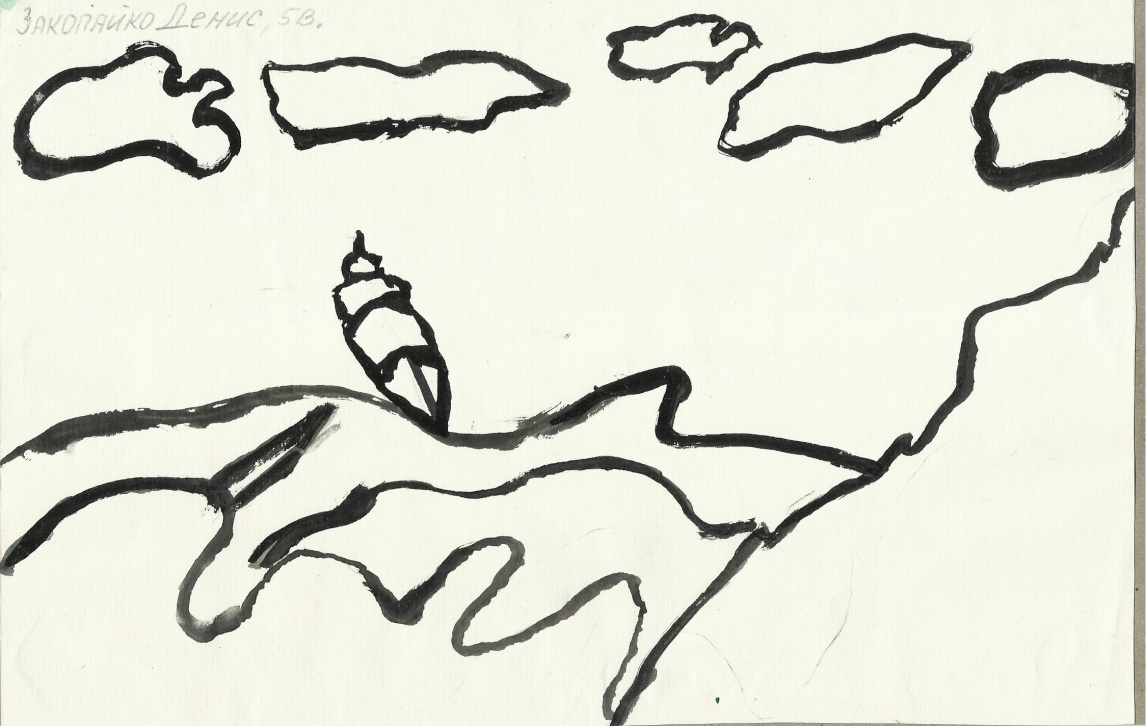 Закопайко Денис, 5В.